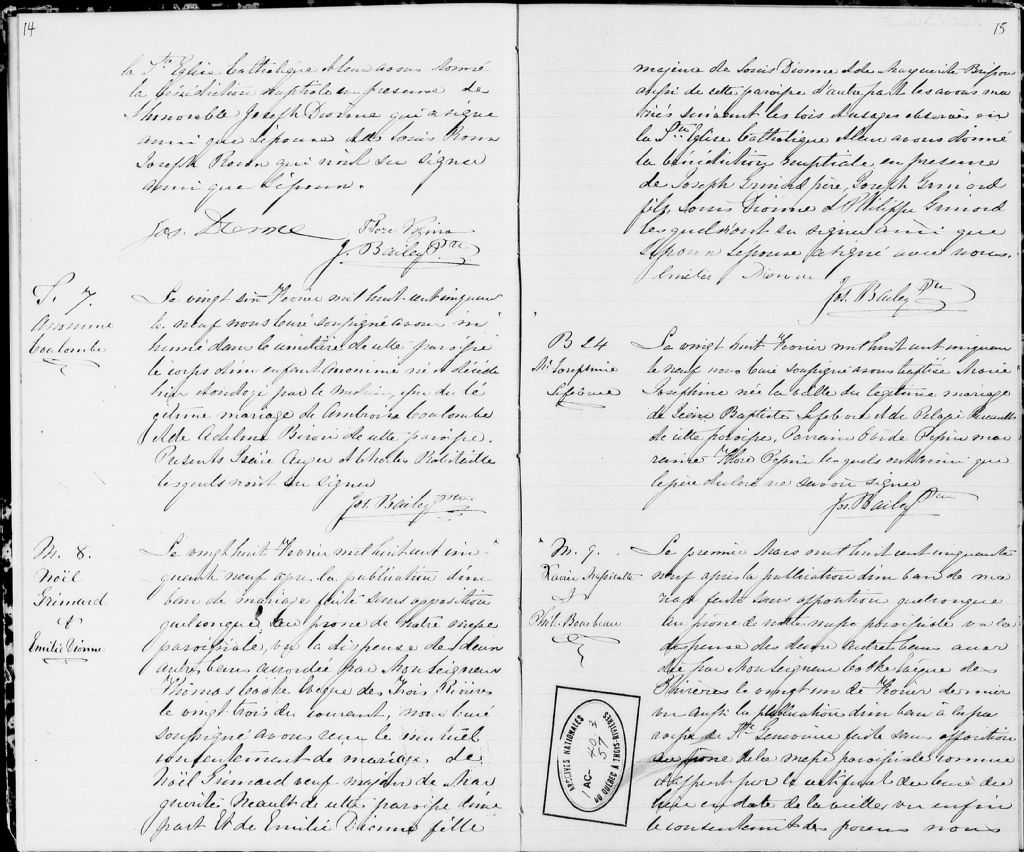 14
la Ste Eglise Catholique & leur avons donné
la bénédiction nuptiale en presence de
l'honorable Joseph Dionne qui a signé
ainsi que l'épouse & de Louis
Joseph qui n'ont su signer
ainsi que l'époux.
Jos. Dionne
J. Bailey Ptre
S. 7.
Anonime
Coulombe
Le vingt six Fevrier mil huit cent cinquante
neuf nous Curé soussigné avons in
humé dans le cimetière de cette paroisse
le corps d'un enfant Anonime né & décédé
hier & ondoyé par le médecin, issu du lé
gitime mariage de Ambroise Coulombe
& de Adeline de cette paroisse.
Presents Isaïe Auger & Charles Robitaille
lesquels n'ont su signer
Jos. Bailey Ptre
M. 8.
Noël
Grimard
&
Emilie Dionne
Le vingt huit Fevrier mil huit cent cin
quante neuf après la publication d'un
ban de mariage faite sans opposition
quelconque au prone de notre messe
paroissiale, vu la dispense de deux
autres bans accordée par Monseigneur
Thomas Cooke Eveque des Trois Rivières
le vingt trois du courant, nous Curé
soussigné avons reçu le mutuel
consentement de mariage de
Noël Grimard veuf majeur de Mar
guerite Neault de cette paroisse d'une
part Et de Emilie Dionne fille
15
majeure de Louis Dionne & de Marguerite Brisson
aussi de cette paroisse d'autre part les avons ma
riés suivant les lois & usages observés en
la Ste Eglise Catholique & leur avons donné
la bénédiction nuptiale en presence
de Joseph Grimord père, Joseph Grimord
fils, Louis Dionne & Philippe Grimord
lesquels n'ont su signer ainsi que
l'époux l'épouse a signé avec nous.
Dionne
Jos. Bailey Ptre
B 24
Me Josephine
Lefebvre
Le vingt huit Fevrier mil huit cent cinquan
te neuf nous Curé soussigné avons baptisé Marie
Josephine née la veille du legitime mariage
de Baptiste Lefebvre & de Pelagie
de cette paroisse, Parrain Pepin mar
raine Flore Pepin lesquels ont ainsi que
le père declaré ne savoir signer
Jos. Bailey Ptre
M. 9.
Xavier
&
Phil. Bourbeau
Le premier Mars mil huit cent cinquante
neuf après la publication d'un ban de ma
riage faite sans opposition quelconque
au prone de notre messe paroissiale vu la
dispense des deux autres bans accor
dée par Monseigneur Cooke Evêque des
T Rivières le vingt un de Fevrier dernier
vu aussi la publication d'un ban à la pa
roisse de Ste Genevieve faite sans opposition
au prone de la messe paroissiale comme
il appert par le certificat du Curé du
lieu en date de la veille, vu enfin
le consentement des parens nous
ARCHIVES NATIONALES
AC-
DU QUÉBEC À TROIS-RIVIÈRES